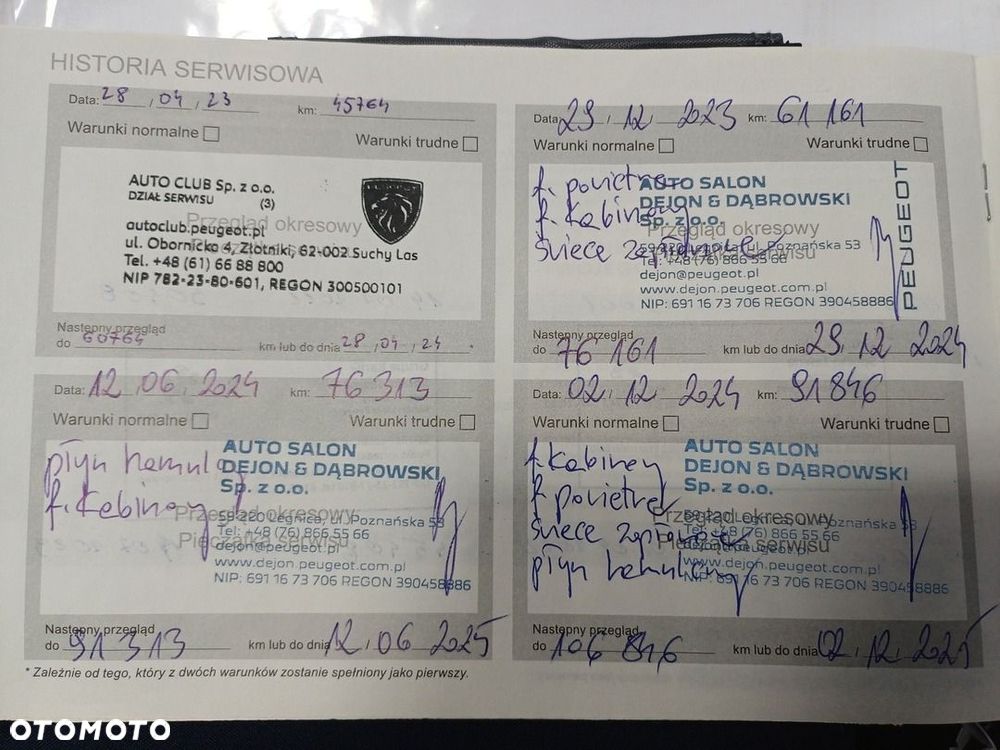 HISTORIA SERWISOWA
Data: 28 , 04 , 23 km: 45764
Warunki normalne
Warunki trudne
AUTO CLUB Sp. z o.o.
DZIAŁ SERWISU (3)
PEUGEOT
Przegląd okresowy
autoclub.peugeot.pl
ul. Obornicka 4, Złotniki, 62-002 Suchy Las
Tel. +48 (61) 66 88 800
NIP 782-23-80-601, REGON 300500101
Następny przegląd
do 60764 km lub do dnia 28 , 04 , 24 .
Data 29 , 12 , 2023 km: 61 161
Warunki normalne
Warunki trudne
f. powietrza
f. Kabinowy
świece zapłonowe
AUTO SALON
DEJON & DĄBROWSKI
Sp. z o.o.
Przegląd okresowy
59-220 Legnica, ul. Poznańska 53
Tel: +48 (76) 866 55 66
dejon@peugeot.pl
www.dejon.peugeot.com.pl
NIP: 691 16 73 706 REGON 390458886
PEUGEOT
Następny przegląd
do 76 161 km lub do dnia 29 , 12 2024
Data: 12 , 06 , 2024 km: 76 313
Warunki normalne
Warunki trudne
płyn hamulcowy
f. Kabinowy
AUTO SALON
DEJON & DĄBROWSKI
Sp. z o.o.
Przegląd okresowy
59-220 Legnica, ul. Poznańska 53
Tel: +48 (76) 866 55 66
Pieczątka serwisu
dejon@peugeot.pl
www.dejon.peugeot.com.pl
NIP: 691 16 73 706 REGON 390458886
Następny przegląd
do 91 313 km lub do dnia 12 , 06 2025
Data: 02 , 12 , 2024 km: 91 846
Warunki normalne
Warunki trudne
f. Kabinowy
f. powietrza
świece zapłonowe
płyn hamulcowy
AUTO SALON
DEJON & DĄBROWSKI
Sp. z o.o.
Przegląd okresowy
59-220 Legnica, ul. Poznańska 53
Tel: +48 (76) 866 55 66
Pieczątka serwisu
dejon@peugeot.pl
www.dejon.peugeot.com.pl
NIP: 691 16 73 706 REGON 390458886
Następny przegląd
do 106 846 km lub do dnia 02 , 12 , 2025
* Zależnie od tego, który z dwóch warunków zostanie spełniony jako pierwszy.
OTOMOTO